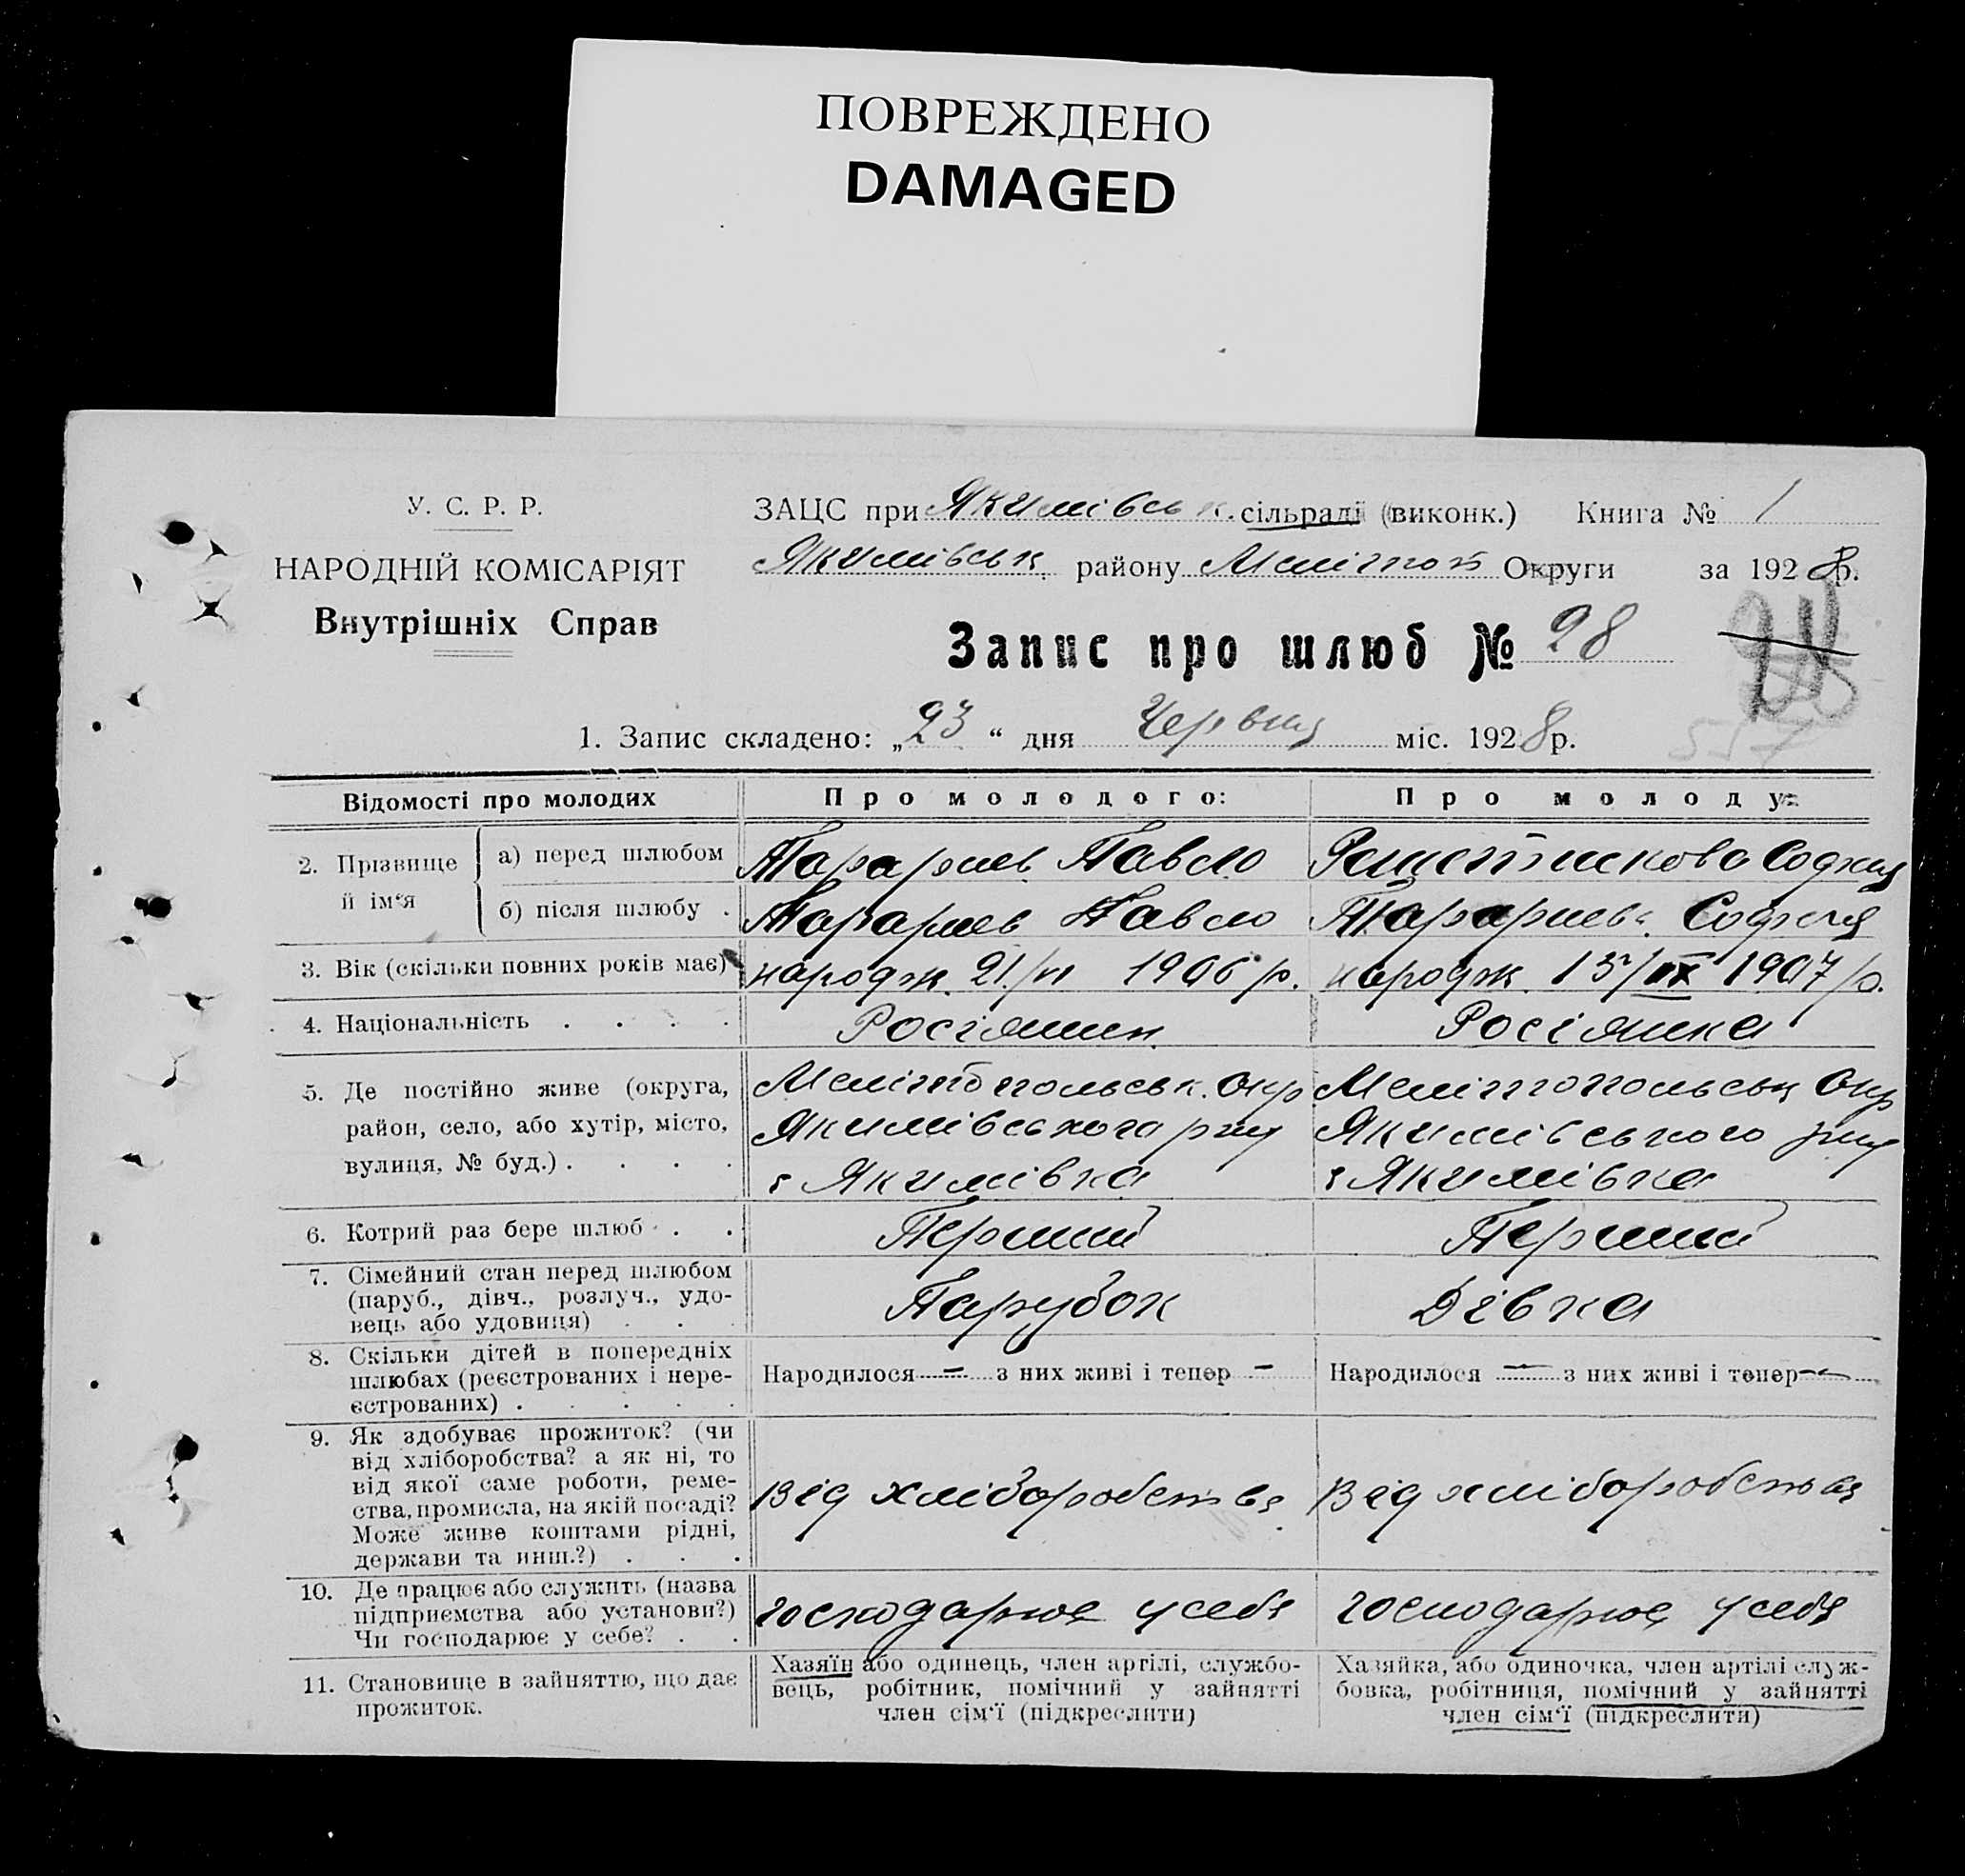 ПОВРЕЖДЕНО
DAMAGED
У. С. Р. Р.
НАРОДНІЙ КОМІСАРІЯТ
Внутрішніх Справ
ЗАЦС при Якимівськ. сільраді (виконк.) Книга № 1
Якимівськ. району Меліітоп Округи за 1928 р.
Запис про шлюб № 28
1. Запис складено: „23“ дня Червня міс. 1928 р.
Відомості про молодих Про молодого: Про молоду:
2. Прізвище й ім'я
а) перед шлюбом Тарариев Павло Решетникова София
б) після шлюбу . Тарариев Павло Тарариева София
3. Вік (скільки повних років має) народж. 21/VI 1906 р. народж. 15/IX 1907 р.
4. Національність . . . . Росіянин Росіянка
5. Де постійно живе (округа, район, село, або хутір, місто, вулиця, № буд.) . . . .
Мелітопольськ. Окр
Якимівського р-ну
с Якимівка
Мелітопольськ Окр
Якимівського р-ну
с Якимівка
6. Котрий раз бере шлюб . . Перший Перший
7. Сімейний стан перед шлюбом
(паруб., дівч., розлуч., удо-
вець або удовиця) . . . Парубок Дівка
8. Скільки дітей в попередніх
шлюбах (реєстрованих і нере-
єстрованих) . . . . .
Народилося — з них живі і тепер — Народилося — з них живі і тепер —
9. Як здобуває прожиток? (чи
від хліборобства? а як ні, то
від якої саме роботи, реме-
ства, промисла, на якій посаді?
Може живе коштами рідні,
держави та инш.?) . . .
Від хліборобства Від хліборобства
10. Де працює або служить (назва
підприємства або установи?)
Чи господарює у себе? . .
господарює у себе господарює у себе
11. Становище в зайняттю, що дає
прожиток.
Хазяїн або одинець, член артілі, службо-
вець, робітник, помічний у зайнятті
член сім'ї (підкреслити)
Хазяйка, або одиночка, член артілі служ-
бовка, робітниця, помічний у зайнятті
член сім'ї (підкреслити)